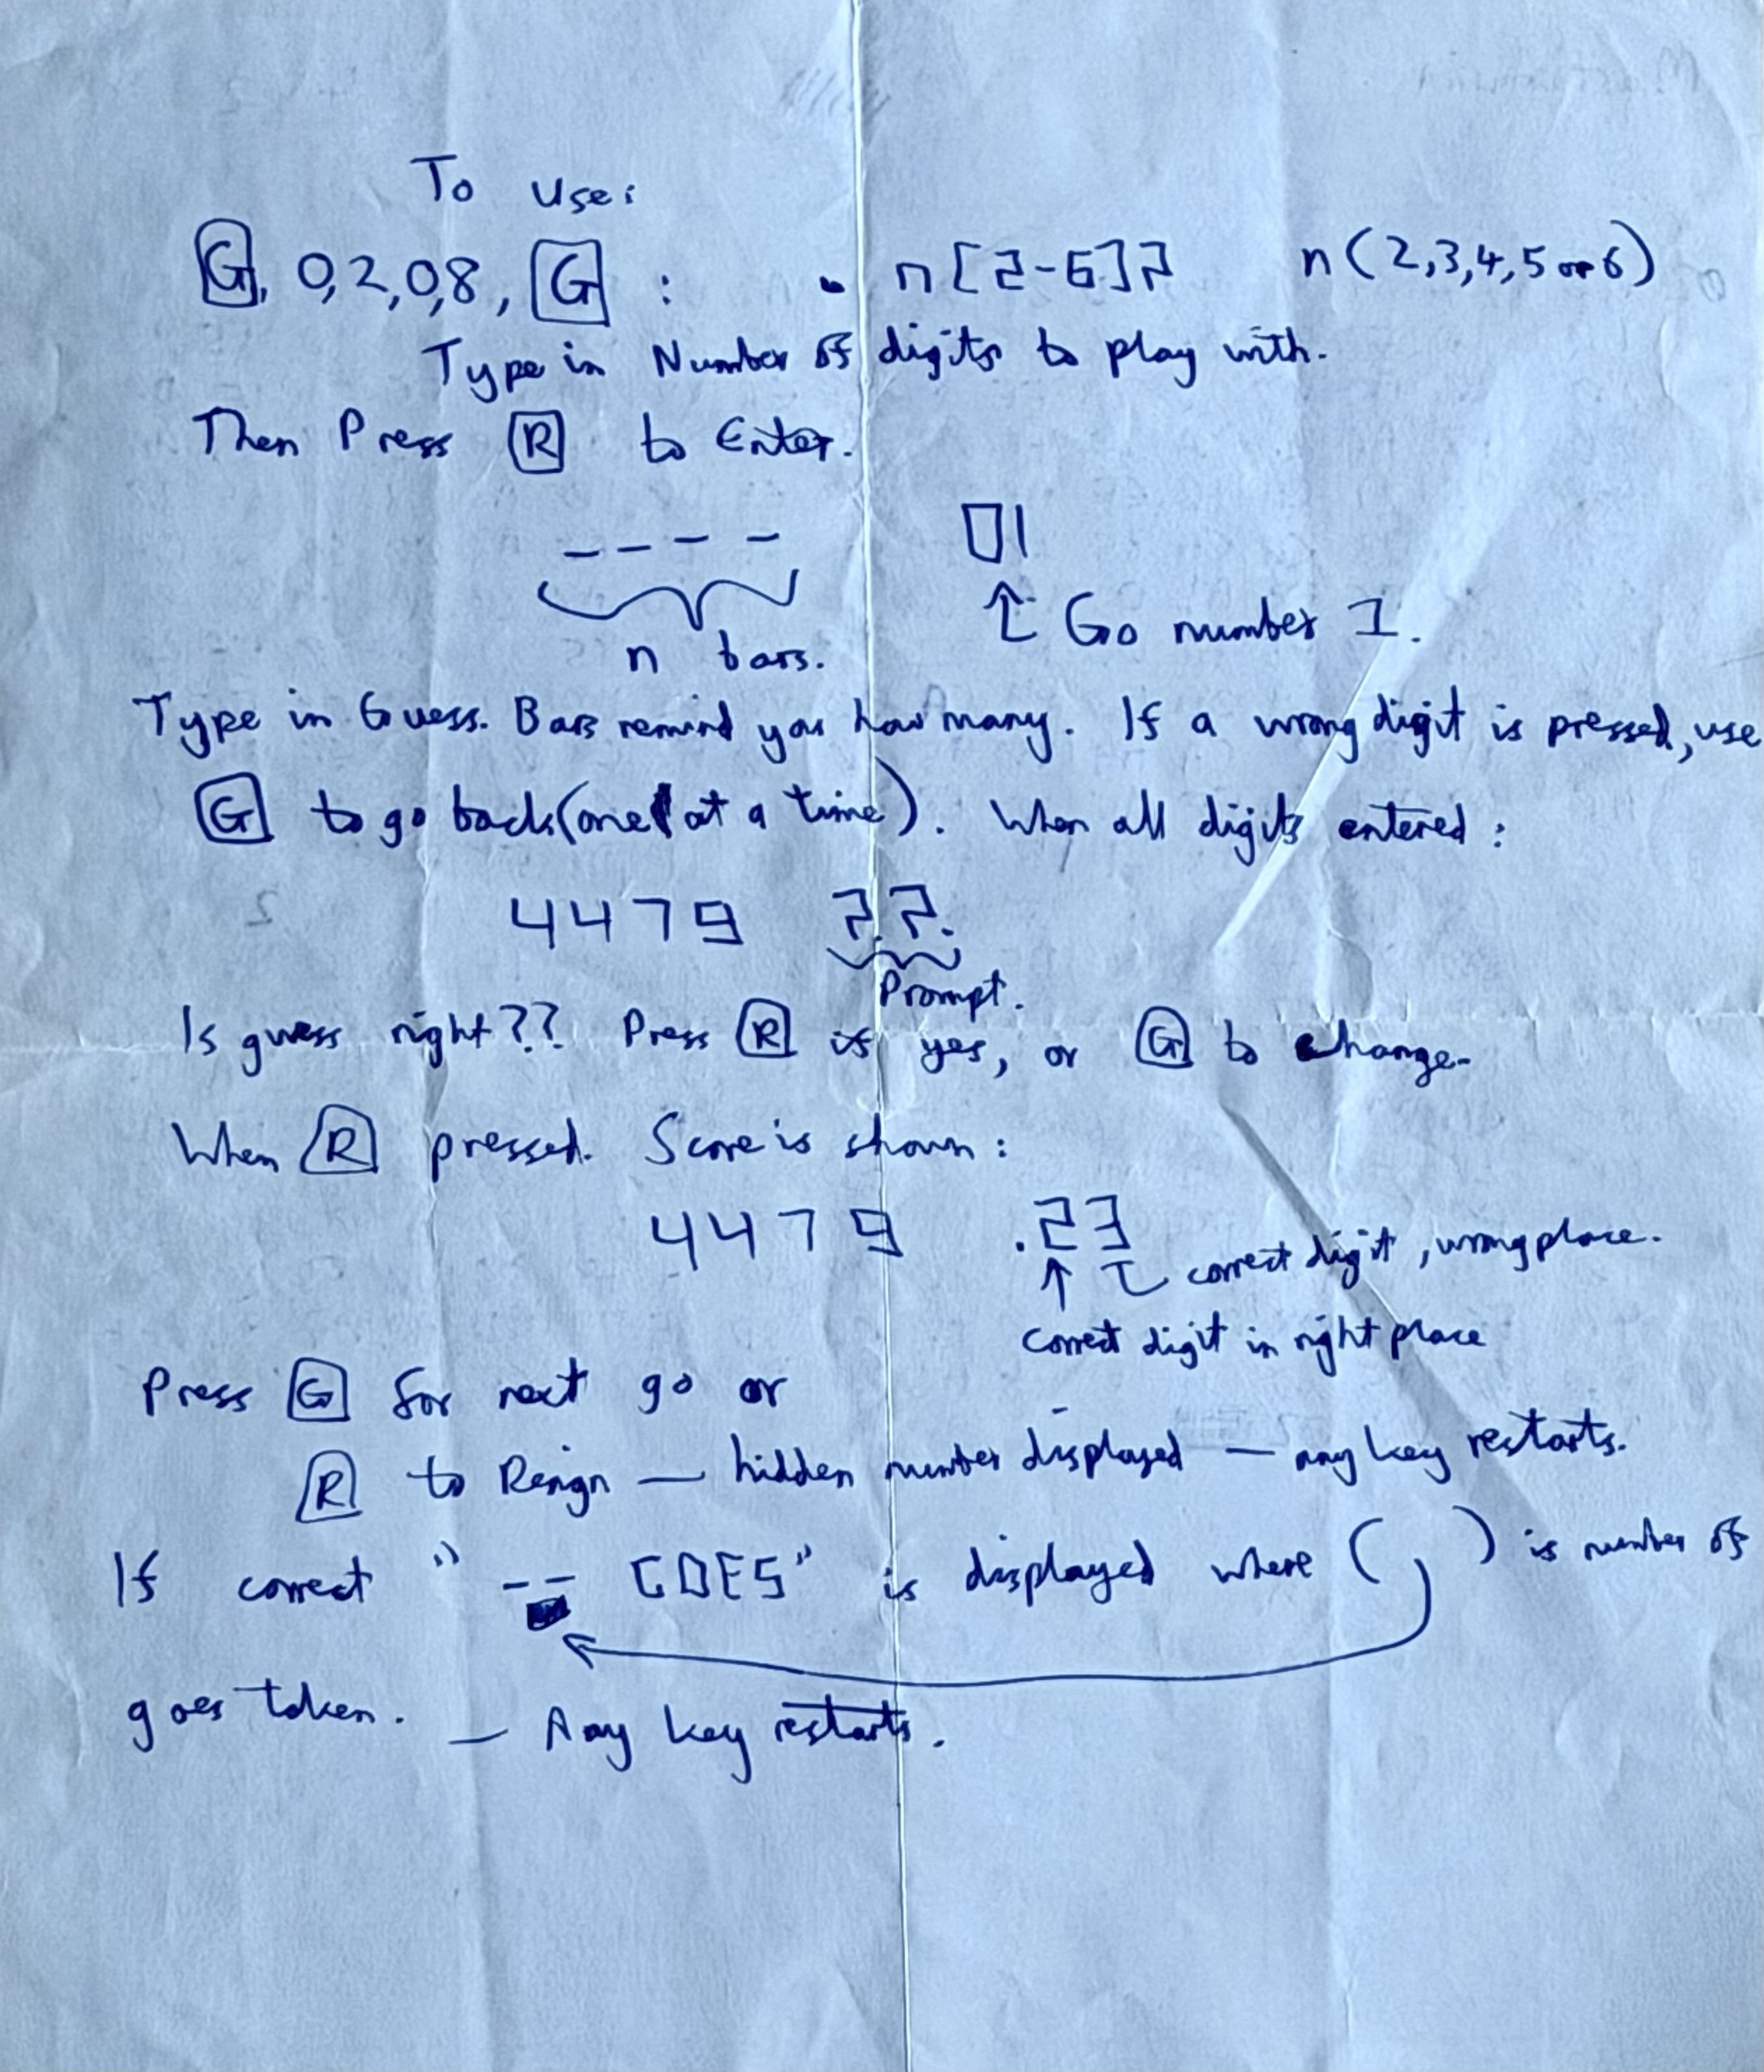 To Use:
G, 0,2,0,8, G : . n[2-6]? n(2,3,4,5 or 6)
Type in Number of digits to play with.
Then Press R to Enter.
_ _ _ _ 01
n bars. ↑ Go number 1.
Type in Guess. Bars remind you how many. If a wrong digit is pressed, use
G to go back (one at a time). When all digits entered:
4479 ?.?.
Prompt.
Is guess right?? Press R if yes, or G to change.
When R pressed. Score is shown:
4479 .23
correct digit, wrong place.
correct digit in right place
Press G for next go or
R to Resign — hidden number displayed — any key restarts.
If correct "-- GOES" is displayed where ( ) is number of
goes taken. — Any key restarts.